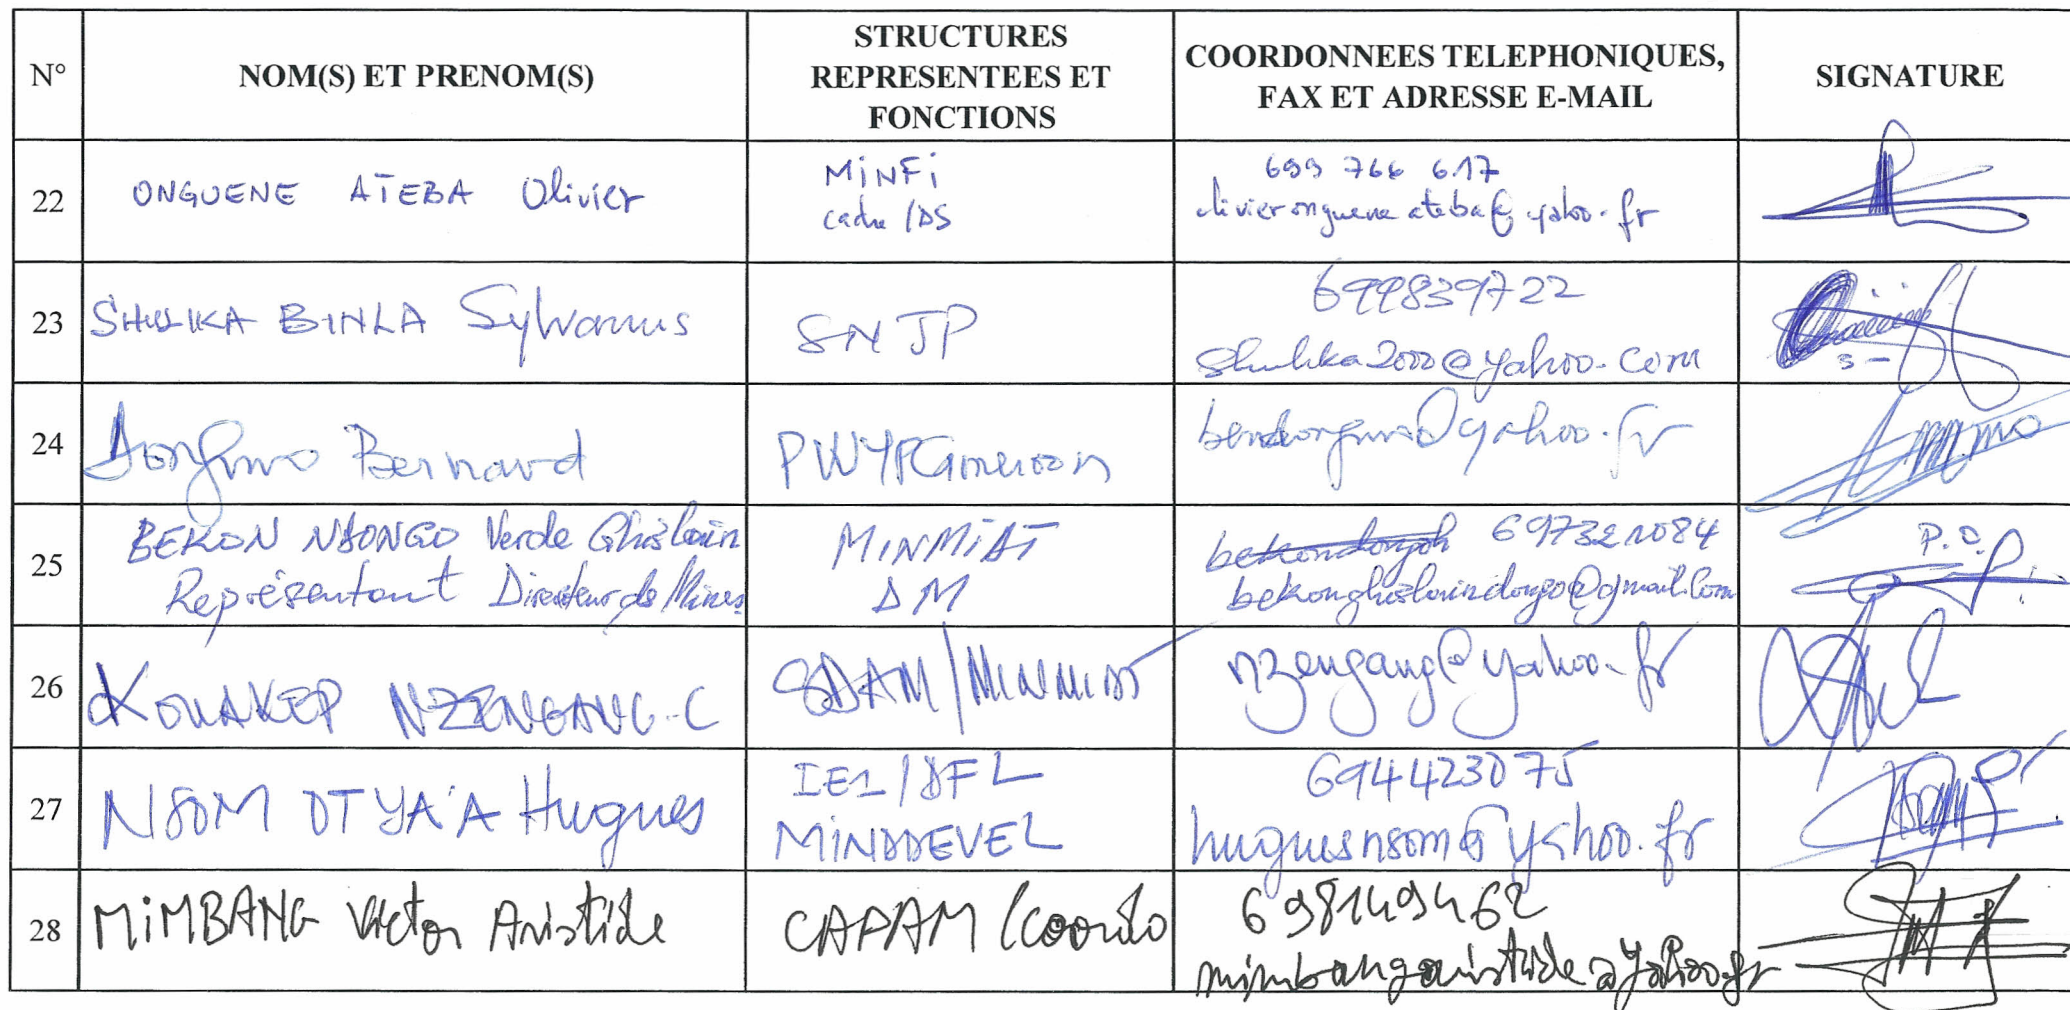 N°
NOM(S) ET PRENOM(S)
STRUCTURES
REPRESENTEES ET
FONCTIONS
COORDONNEES TELEPHONIQUES,
FAX ET ADRESSE E-MAIL
SIGNATURE
22
ONGUENE ATEBA Olivier
MiNFi
cadre /DS
699 766 617
olivieronguene ateba@yahoo.fr
23
SHULIKA BINLA Sylvanus
SNJP
699839722
Shulika2000@yahoo.com
24
Dongmo Bernard
PWYPCameroon
@yahoo.fr
25
BEKON NDONGO Verde Ghislain
Représentant Directeur des Mines
MINMIDT
DM
697321084
bekonghislainndongo@gmail.com
P.O.
26
KOUAKEP NZENGANG.C
/MINMIDT
nzengang@yahoo.fr
27
NSOM OTYA'A Hugues
IE1/DFL
MINDDEVEL
694423075
huguesnsom@yahoo.fr
28
MiMBANG Victor Aristide
CAPAM/Coordo
698149462
mimbangaristide@yahoo.fr